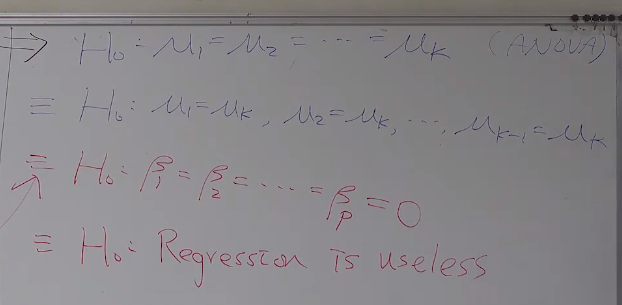 ⇒ H₀: μ₁ = μ₂ = ⋯ = μ_K (ANOVA)
≡ H₀: μ₁ = μ_K, μ₂ = μ_K, ⋯, μ_{K-1} = μ_K
≡ H₀: β₁ = β₂ = ⋯ = β_p = 0
≡ H₀: Regression is useless